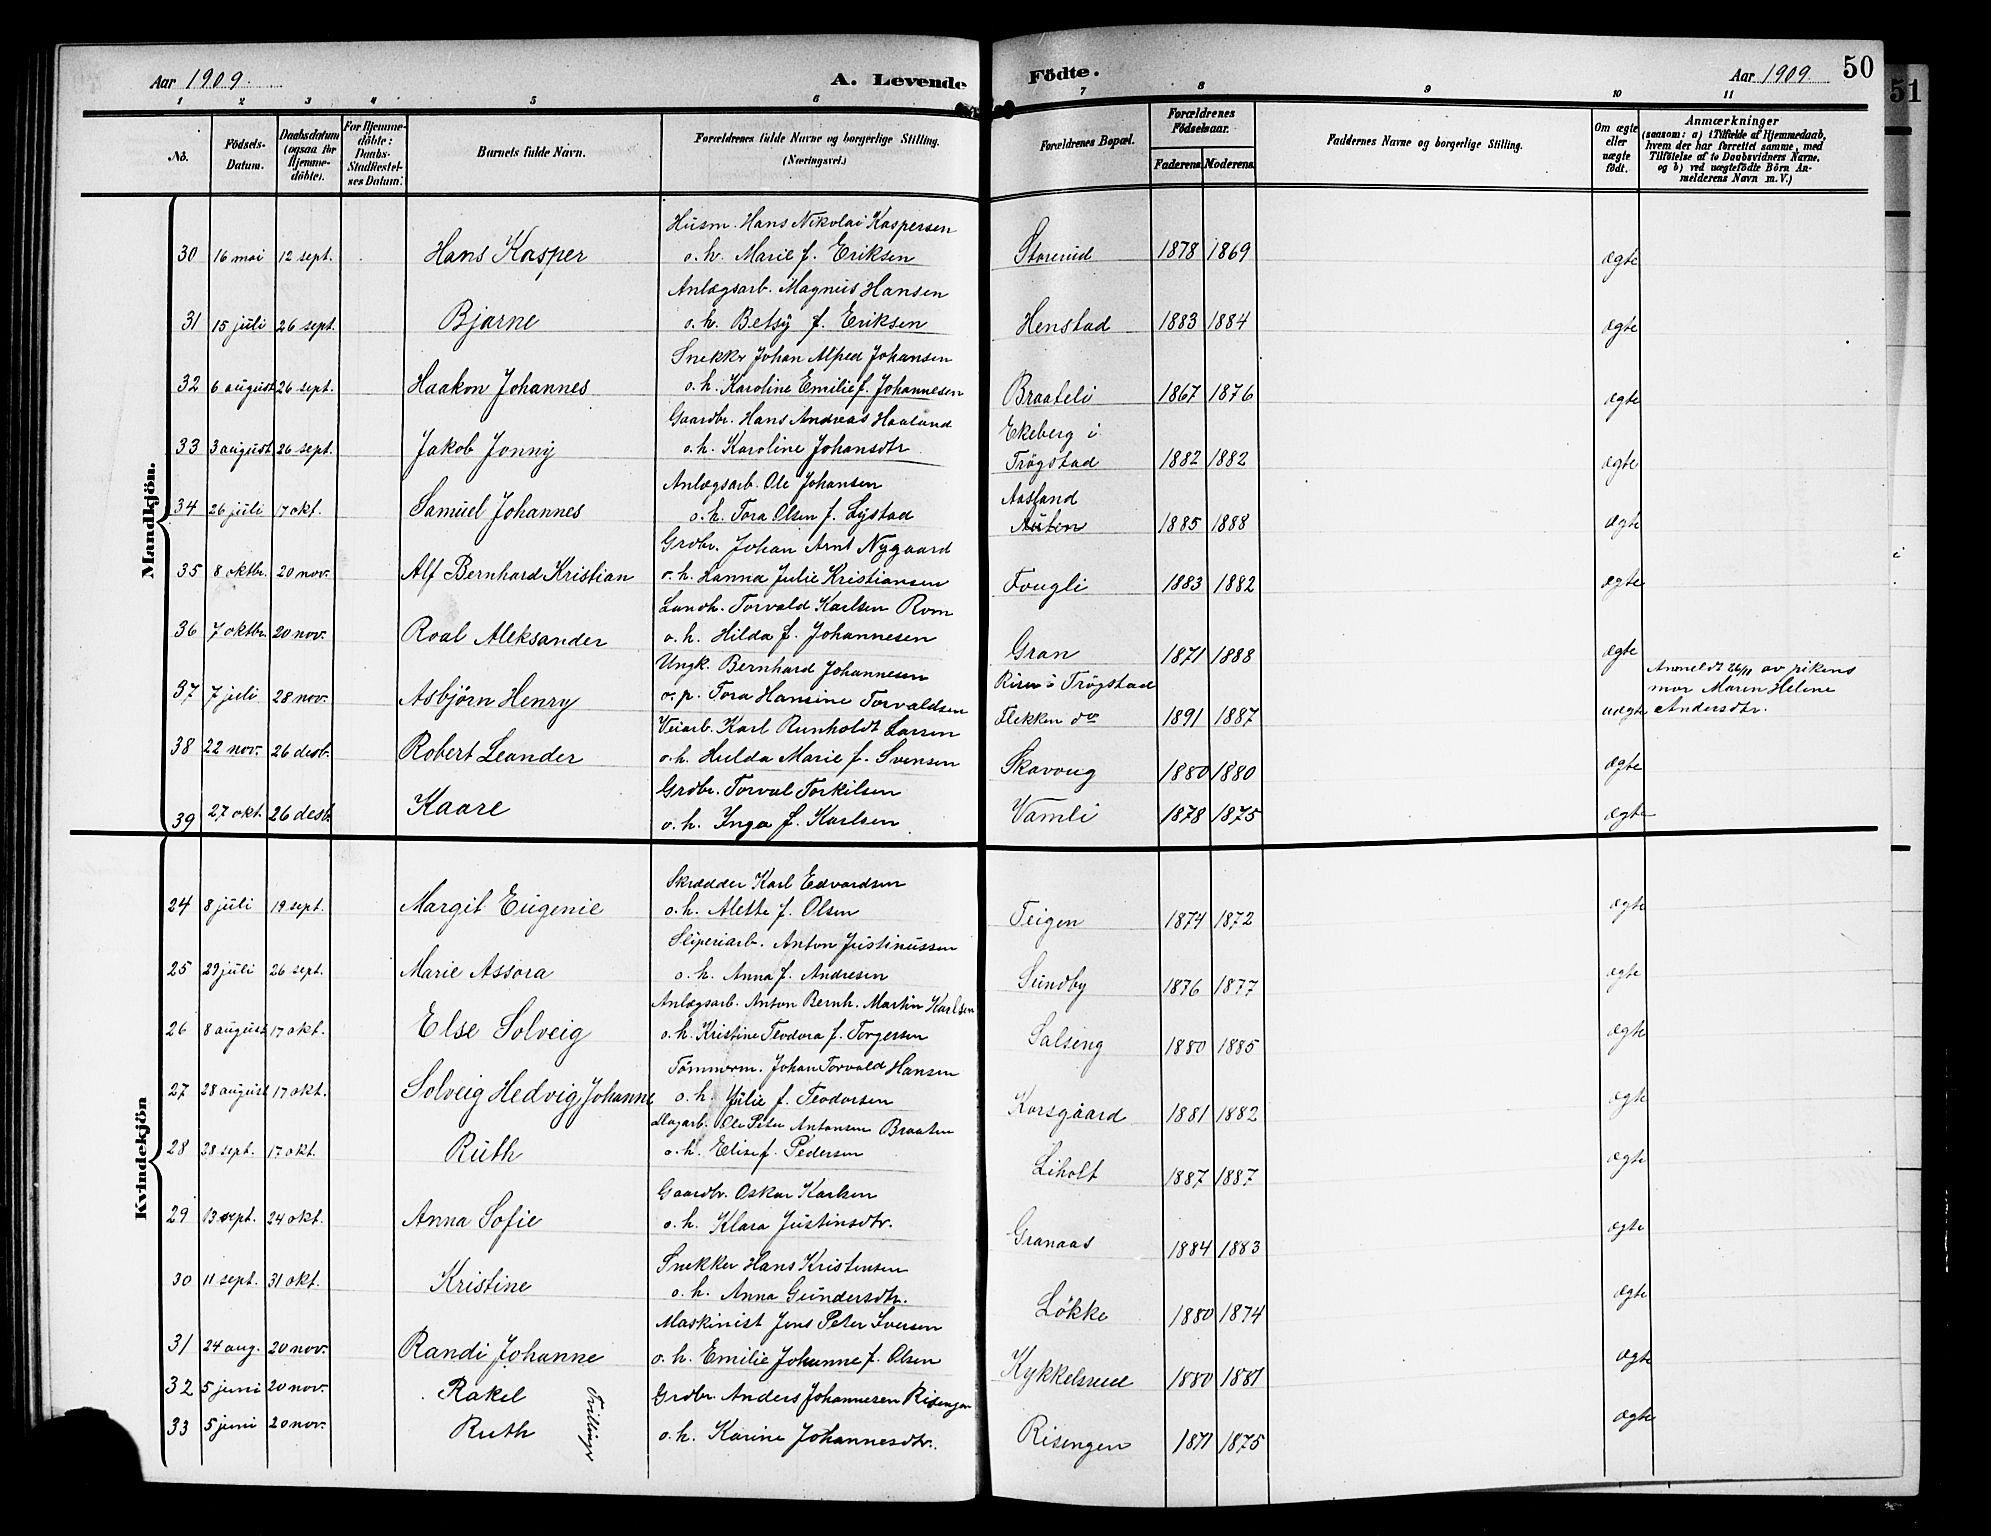 Aar 1909.
A. Levende Födte.
Aar 1909.
50
51
1 2 3 4 5 6 7 8 9 10 11
No.
Födsels-Datum.
Daabsdatum (ogsaa for Hjemme-döbte).
For Hjemme-döbte: Daabs-Stadfæstel-ses Datum.
Barnets fulde Navn.
Forældrenes fulde Navne og borgerlige Stilling. (Næringsvei.)
Forældrenes Bopæl.
Forældrenes Födselsaar.
Faderens. Moderens.
Faddernes Navne og borgerlige Stilling.
Om ægte eller uægte födt.
Anmærkninger (saasom: a) i Tilfælde af Hjemmedaab, hvem der har forrettet samme, med Tilföielse af to Daabsvidners Navne, og b) ved uægtefödte Börn An-melderens Navn m. V.)
Mandkjön.
Husm. Hans Nikolai Kaspersen
30 16 mai 12 sept. Hans Kasper o. h. Marie f. Eriksen Storerud 1878 1869 ægte
Anlægsarb. Magnus Hansen
31 15 juli 26 sept. Bjarne o. h. Betsy f. Eriksen Henstad 1883 1884 ægte
Snekkr Johan Alfred Johansen
32 6 august 26 sept. Haakon Johannes o. h. Karoline Emilie f. Johannesen Braateli 1867 1876 ægte
Gaardbr. Hans Andreas Haaland Ekeberg i
33 3 august 26 sept. Jakob Jonny o. h. Karoline Johansdtr Trøgstad 1882 1882 ægte
Anlægsarb. Ole Johansen Aasland
34 26 juli 17 okt. Samuel Johannes o. h. Tora Olsen f. Lystad 1885 1888 ægte
Grdbr. Johan Arnt Nygaard
35 8 oktbr. 20 nov. Alf Bernhard Kristian o. h. Hanna Julie Kristiansen Fougli 1883 1882 ægte
Landh. Torvald Karlsen Rom
36 7 oktbr. 20 nov. Roal Aleksander o. h. Hilda f. Johannesen Gran 1871 1888 ægte
Ungk. Bernhard Johannesen i Trøgstad Anmeldt 26/11 av pikens
37 7 juli 28 nov. Asbjørn Henry o. p. Tora Hansine Torvaldsen Flekken do 1891 1887 uægte mor Maren Helene Andersdtr.
Veiarb. Karl Runholdt Larsen
38 22 nov. 26 desb. Robert Leander o. h. Hulda Marie f. Svensen Skavoug 1880 1880 ægte
Grdbr. Torval Torkilsen
39 27 okt. 26 desb. Kaare o. h. Inga f. Karlsen Vamli 1878 1875 ægte
Kvindekjön
Skrædder Karl Edvardsen
24 8 juli 19 sept. Margit Eugenie o. h. Alette f. Olsen Teigen 1874 1872 ægte
Sliperiarb. Anton Justinussen
25 29 juli 26 sept. Marie Assora o. h. Anna f. Andresen Sundby 1876 1877 ægte
Anlægsarb. Anton Bernh. Martin Karlsen
26 8 august 17 okt. Else Solveig o. h. Kristine Teodora f. Torgersen Salseng 1880 1885 ægte
Tømmerm. Johan Torvald Hansen
27 28 august 17 okt. Solveig Hedvig Johanne o. h. Julie f. Teodorsen Korsgaard 1881 1882 ægte
Ole Peter Antonsen Braaten
28 28 sept. 17 okt. Ruth o. h. Elise f. Pedersen Liholt 1887 1887 ægte
Gaardbr. Oskar Karlsen
29 13 sept. 24 okt. Anna Sofie o. h. Klara Justinsdtr. Granaas 1884 1883 ægte
Snekker Hans Kristensen
30 11 sept. 31 okt. Kristine o. h. Anna Gundersdtr. Løkke 1880 1874 ægte
Maskinist Jens Peter Iversen
31 24 aug. 20 nov. Randi Johanne o. h. Emilie Johanne f. Olsen Kykkelsrud 1880 1881 ægte
32 5 juni 20 nov. Rakel Tvillinger Grdbr. Anders Johannesen Risengen
33 5 juni 20 nov. Ruth o. h. Karine Johannesdtr. Risengen 1871 1875 ægte